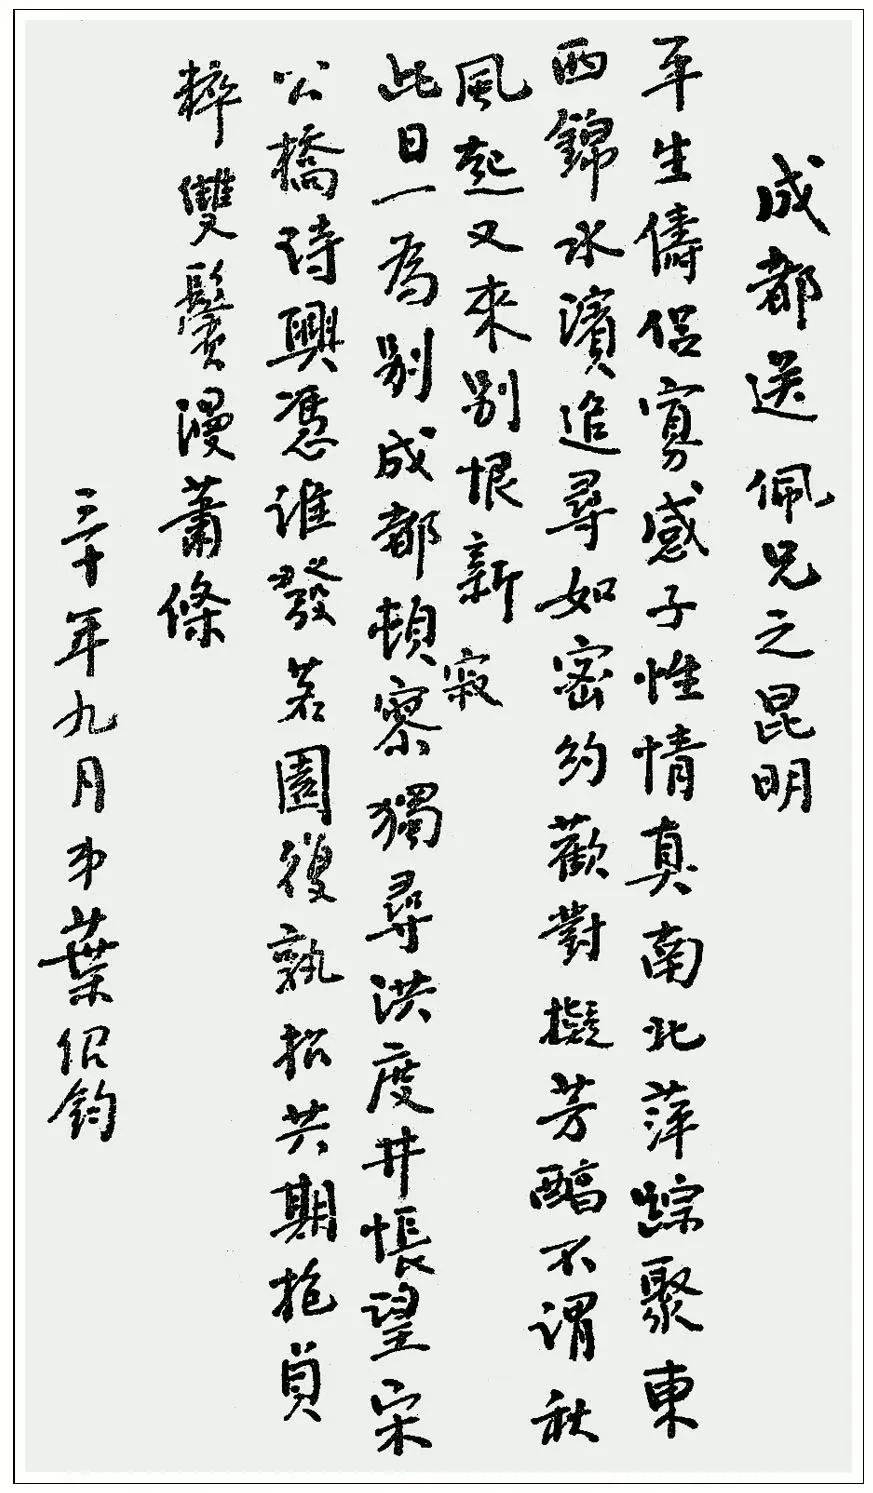 成都送佩兄之昆明
平生儔侣寡感子性情真南北萍踪聚東
西錦水濱追尋如密約歡對擬芳醕不謂秋
風起又來别恨新
寂
此日一為别成都頓寥獨尋洪度井悵望宋
公橋詩興憑誰發茗園復孰招共期抱貞
粹雙鬢漫蕭條
三十年九月弟葉紹鈞